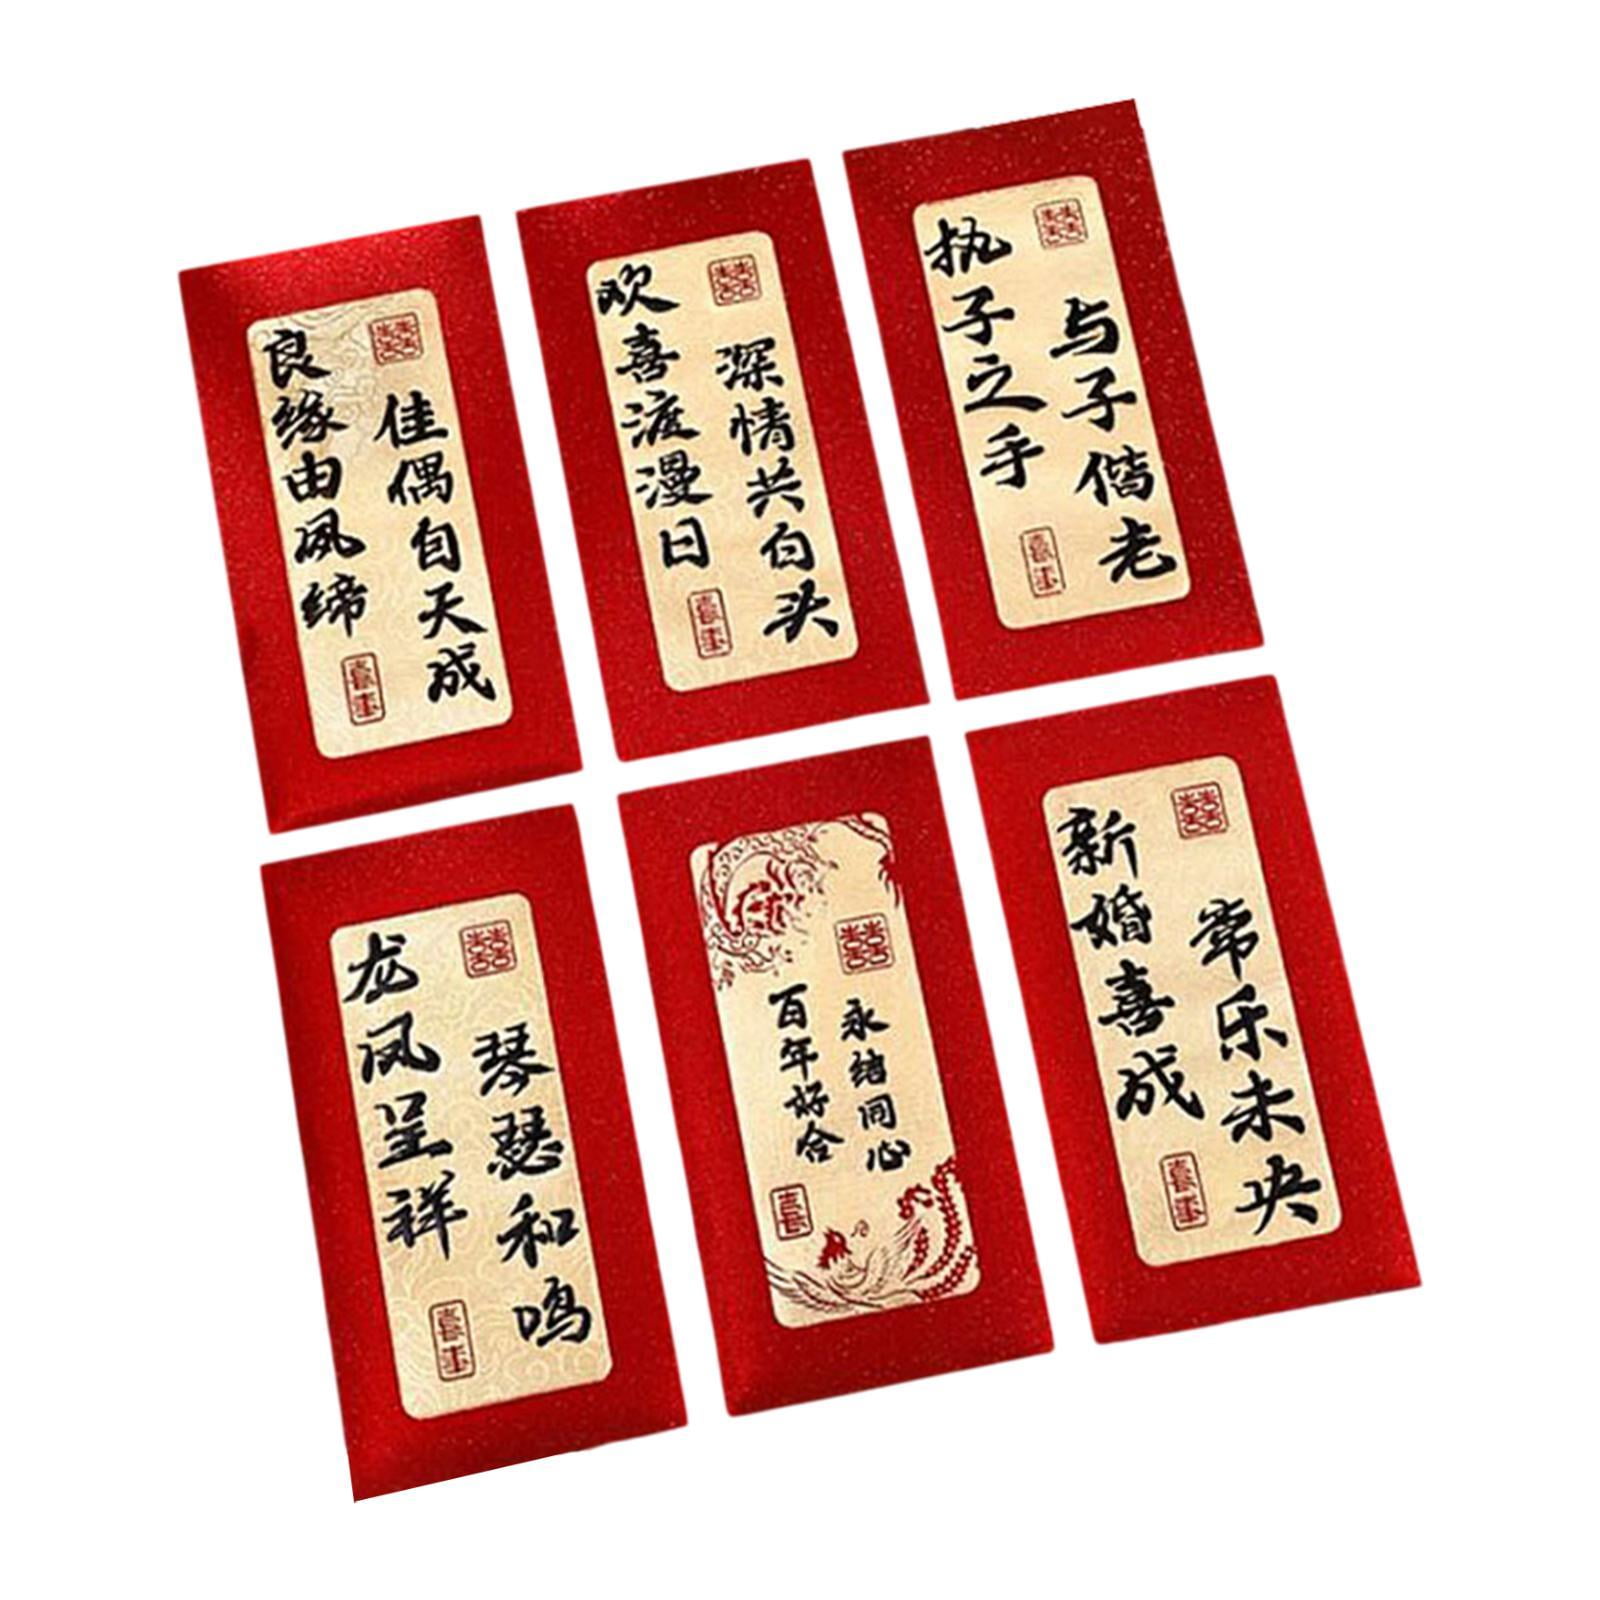 良缘由夙缔
佳偶自天成
囍
喜事
欢喜渡漫日
深情共白头
囍
喜事
执子之手
与子偕老
囍
喜事
龙凤呈祥
琴瑟和鸣
囍
喜事
百年好合
永结同心
囍
喜
新婚喜成
常乐未央
囍
喜事